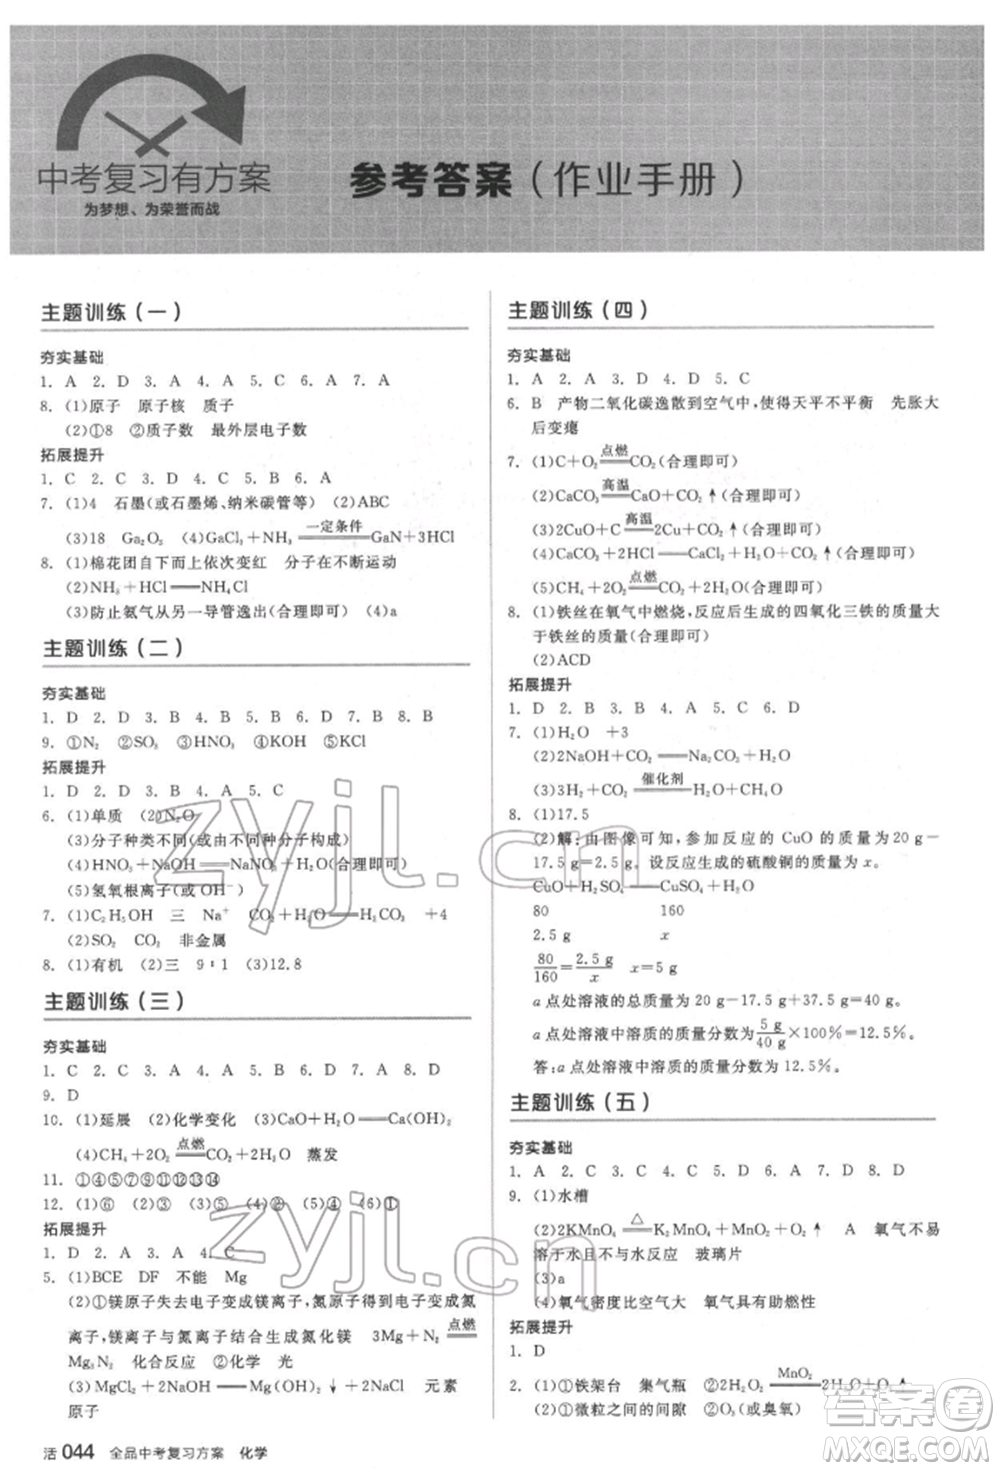 中考复习有方案
为梦想、为荣誉而战
参考答案（作业手册）
主题训练（一）
夯实基础
1. A 2. D 3. A 4. A 5. C 6. A 7. A
8. (1)原子 原子核 质子
(2)①8 ②质子数 最外层电子数
拓展提升
1. C 2. D 3. C 4. D 5. C 6. B
7. (1)4 石墨(或石墨烯、纳米碳管等) (2)ABC
(3)18 Ga₂O₃ (4)GaCl₃＋NH₃ 一定条件 GaN＋3HCl
8. (1)棉花团自下而上依次变红 分子在不断运动
(2)NH₃＋HCl══NH₄Cl
(3)防止氨气从另一导管逸出(合理即可) (4)a
主题训练（二）
夯实基础
1. D 2. D 3. B 4. B 5. B 6. D 7. B 8. B
9. ①N₂ ②SO₃ ③HNO₃ ④KOH ⑤KCl
拓展提升
1. D 2. D 3. A 4. A 5. C
6. (1)单质 (2)N₂O
(3)分子种类不同(或由不同种分子构成)
(4)HNO₃＋NaOH══NaNO₃＋H₂O(合理即可)
(5)氢氧根离子(或OH⁻)
7. (1)C₂H₅OH 三 Na⁺ CO₂＋H₂O══H₂CO₃ ＋4
(2)SO₂ CO₂ 非金属
8. (1)有机 (2)三 9∶1 (3)12.8
主题训练（三）
夯实基础
1. C 2. C 3. A 4. A 5. C 6. A 7. D 8. D
9. D
10. (1)延展 (2)化学变化 (3)CaO＋H₂O══Ca(OH)₂
(4)CH₄＋2O₂ 点燃 CO₂＋2H₂O 蒸发
11. ①④⑤⑦⑨⑪⑫⑬⑭
12. (1)⑥ (2)③ (3)⑤ (4)② (5)④ (6)①
拓展提升
1. D 2. A 3. A 4. C
5. (1)BCE DF 不能 Mg
(2)①镁原子失去电子变成镁离子,氮原子得到电子变成氮
离子,镁离子与氮离子结合生成氮化镁 3Mg＋N₂ 点燃
Mg₃N₂ 化合反应 ②化学 光
(3)MgCl₂＋2NaOH══Mg(OH)₂↓＋2NaCl 元素
原子
活 044 全品中考复习方案 化学
主题训练（四）
夯实基础
1. A 2. A 3. D 4. D 5. C
6. B 产物二氧化碳逸散到空气中,使得天平不平衡 先胀大
后变瘪
7. (1)C＋O₂ 点燃 CO₂(合理即可)
(2)CaCO₃ 高温 CaO＋CO₂↑(合理即可)
(3)2CuO＋C 高温 2Cu＋CO₂↑(合理即可)
(4)CaCO₃＋2HCl══CaCl₂＋H₂O＋CO₂↑(合理即可)
(5)CH₄＋2O₂ 点燃 CO₂＋2H₂O(合理即可)
8. (1)铁丝在氧气中燃烧,反应后生成的四氧化三铁的质量大
于铁丝的质量(合理即可)
(2)ACD
拓展提升
1. D 2. B 3. B 4. A 5. C 6. D
7. (1)H₂O ＋3
(2)2NaOH＋CO₂══Na₂CO₃＋H₂O
(3)3H₂＋CO₂ 催化剂 H₂O＋CH₃OH
8. (1)17.5
(2)解:由图像可知,参加反应的CuO的质量为20 g－
17.5 g＝2.5 g。设反应生成的硫酸铜的质量为x。
CuO＋H₂SO₄══CuSO₄＋H₂O
80 160
2.5 g x
80/160＝2.5 g/x x＝5 g
a点处溶液的总质量为20 g－17.5 g＋37.5 g＝40 g。
a点处溶液中溶质的质量分数为5 g/40 g×100%＝12.5%。
答:a点处溶液中溶质的质量分数为12.5%。
主题训练（五）
夯实基础
1. A 2. C 3. C 4. D 5. C 6. B 7. D 8. D
9. (1)水槽
(2)2KMnO₄ △ K₂MnO₄＋MnO₂＋O₂↑ A 氧气不易
溶于水且不与水反应 玻璃片
(3)a
(4)氧气密度比空气大 氧气具有助燃性
拓展提升
1. D
2. (1)①铁架台 集气瓶 ②2H₂O₂ MnO₂ 2H₂O＋O₂↑
(2)①微粒之间的间隙 ②O₃(或臭氧)
zyjl.cn
zyjl.cn
答案圈